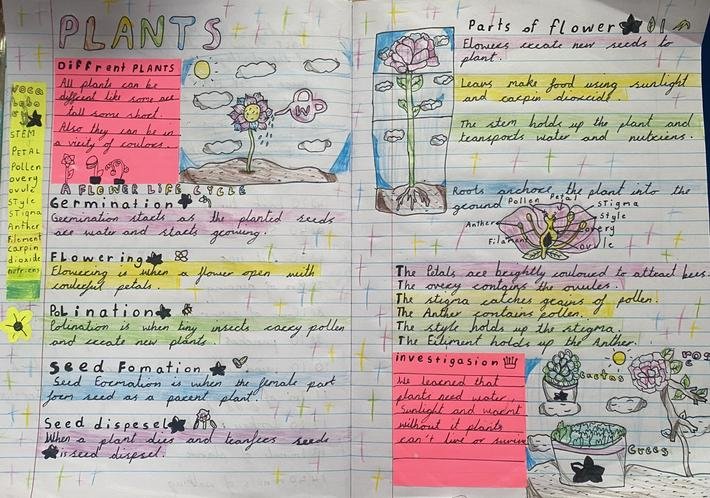 PLANTS
Diffrent PLANTS
All plants can be
diffcent like some are
tall some short.
Also they can be in
a viciety of coulors.
voca
STEM
PETAL
Pollen
overy
ovule
style
STigma
Anther
Filement
carpin
dioxide
nutriens
W
A FLOWER LIFE CYCLE
Germination
Germination starts as the planted seeds
are water and starts growing.
Flowering
Flowering is when a flower open with
coulerful petals.
Polination
Polination is when tiny insects carry pollen
and create new plants
Seed Fomation
Seed Formation is when the female part
form seed as a parent plant.
Seed dispesel
When a plant dies and tranfers seeds
is seed dispsel.
Parts of flower
Flowers create new seeds to
plant.
Leavs make food using sunlight
and carpin dioxcide.
The stem holds up the plant and
transports water and nutriens.
Roots anchors the plant into the
ground
Pollen
Petal
STigma
style
overy
ovule
Anther
Filament
The Petals are brightly couloured to attract bees.
The overy contains the ovules.
The stigma catches grains of pollen.
The Anther contains pollen.
The style holds up the stigma.
The Filiment holds up the Anther.
investigasion
We learned that
plants need water,
Sunlight and warmt
without it plants
can't live or survive
Cactus
rose
Cress